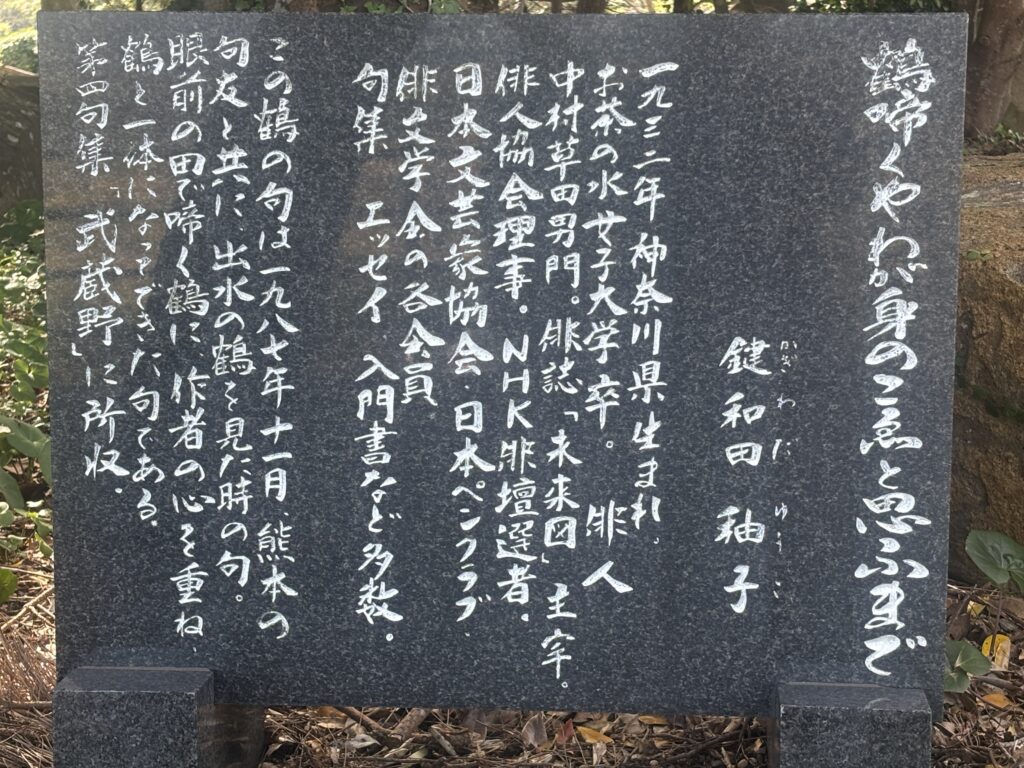 鶴啼くやわが身のこゑと思ふまで
鍵和田 秞子
かぎ わだ ゆう こ
一九三二年 神奈川県生まれ。
お茶の水女子大学卒。 俳人
中村草田男門。俳誌「未来図」主宰。
俳人協会理事。NHK俳壇選者。
日本文芸家協会・日本ペンクラブ・
俳文学会の各会員。
句集 エッセイ、入門書など多数。
この鶴の句は一九八七年十一月、熊本の
句友と共に、出水の鶴を見た時の句。
眼前の田で啼く鶴に、作者の心を重ね、
鶴と一体になってできた句である。
第四句集「武蔵野」に所収。